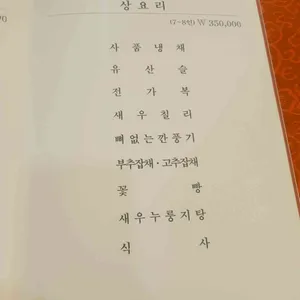 상 요 리
(7~8인) ₩ 350,000
사 품 냉 채
유 산 슬
전 가 복
새 우 칠 리
뼈없는깐풍기
부추잡채·고추잡채
꽃 빵
새우누룽지탕
식 사